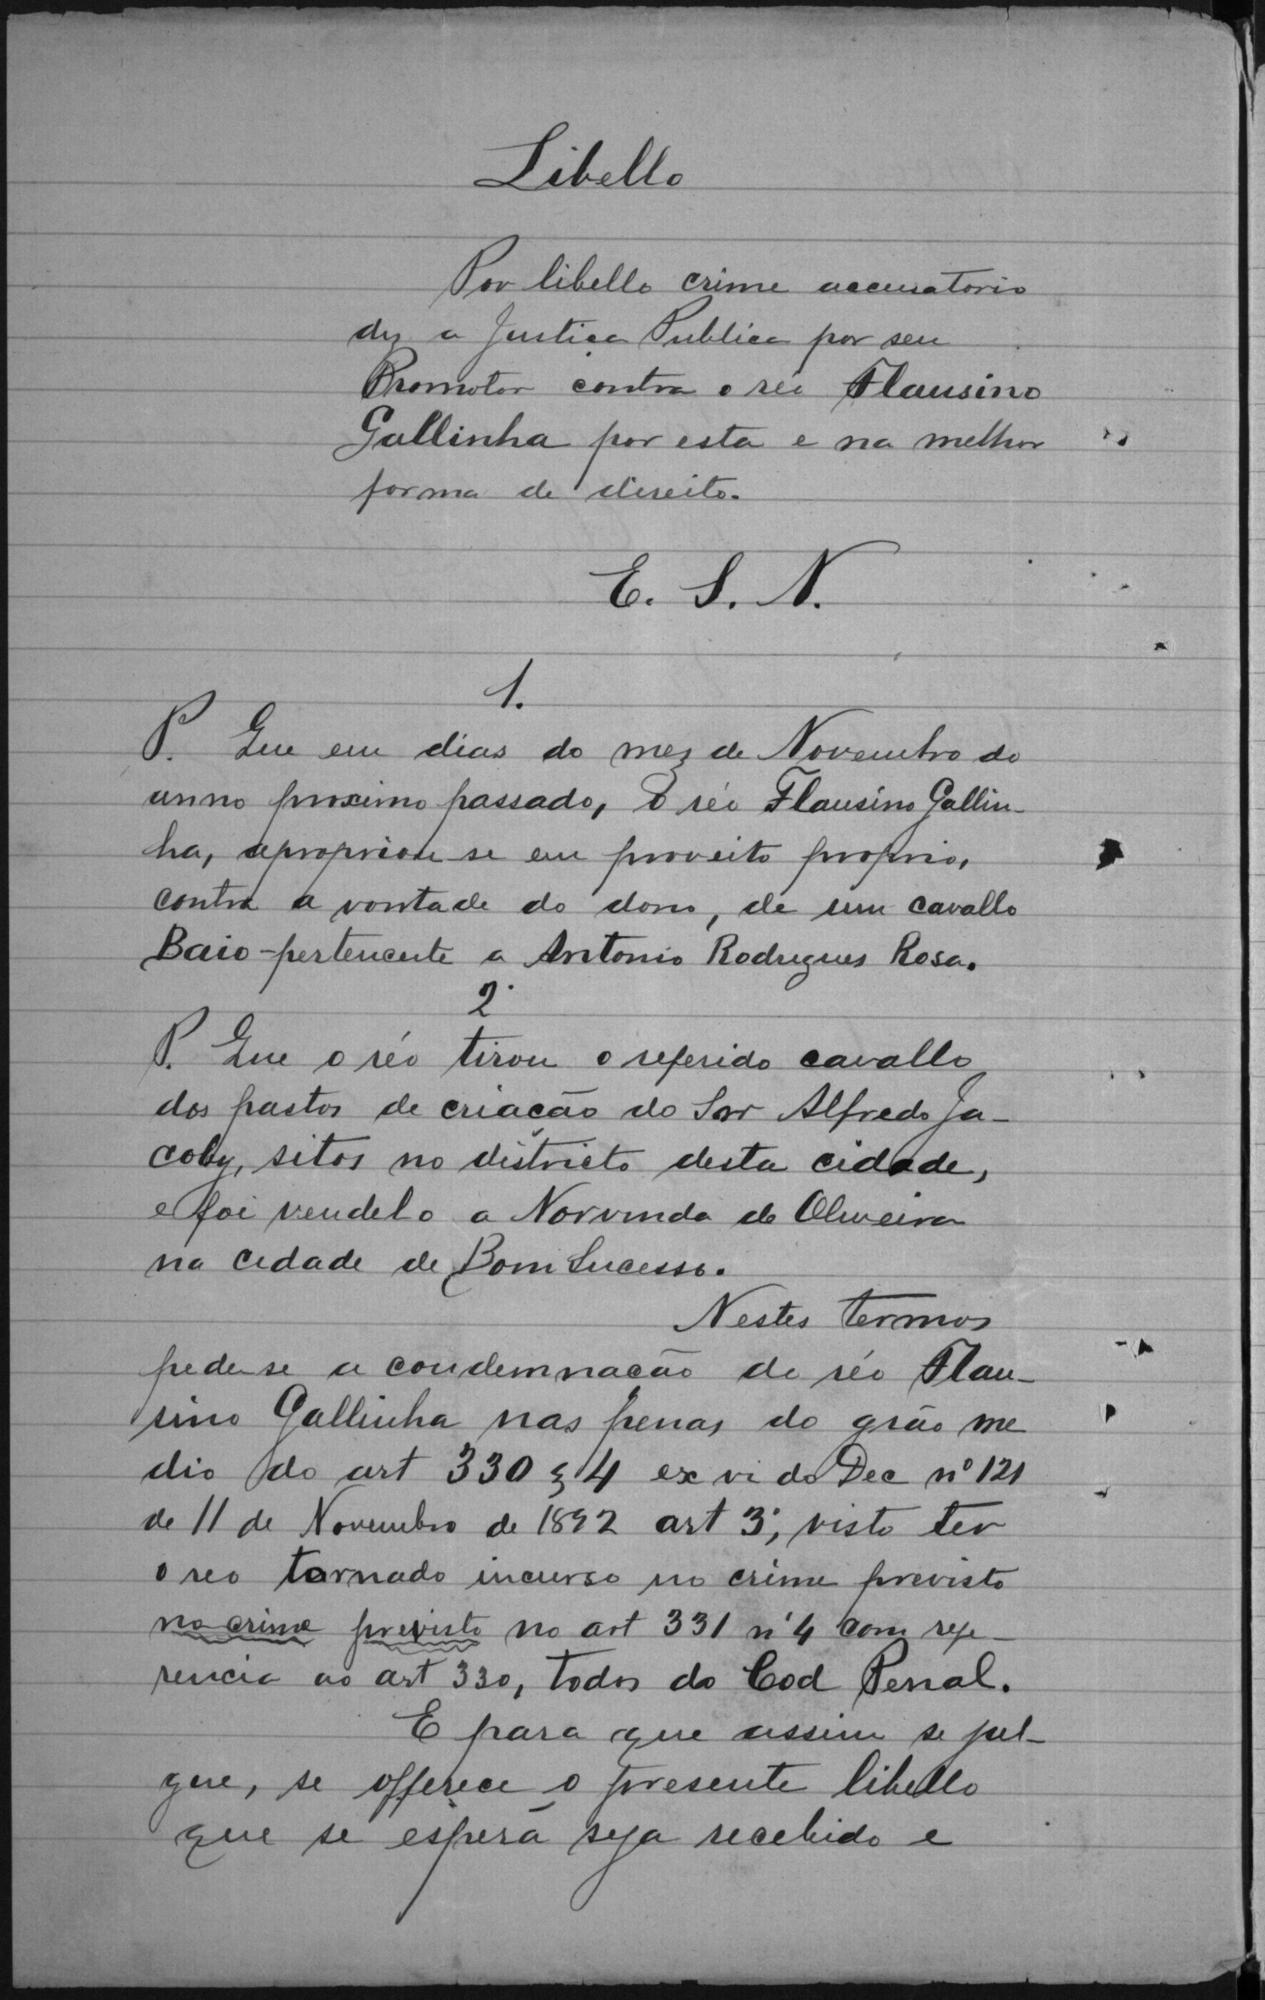 Libello
Por libello crime accusatorio
diz a Justiça Publica por seu
Promotor contra o réo Flausino
Gallinha por esta e na melhor
forma de direito.
E. S. N.
1.
P. Que em dias do mez de Novembro do
anno proximo passado, o réo Flausino Gallin-
ha, apropriou se em proveito proprio,
contra a vontade do dono, de um cavallo
Baio-pertencente a Antonio Rodrigues Rosa.
2.
P. Que o réo tirou o referido cavallo
dos pastos de criação do Snr Alfredo Ja-
coby, sitos no districto desta cidade,
e foi vendelo a Norvinda de Oliveira
na cidade de Bom Sucesso.
Nestes termos
pede-se a condemnação do réo Flau-
sino Gallinha nas penas do gráo me
dio do art 330 § 4 ex vi do Dec nº 121
de 11 de Novembro de 1892 art 3º, visto ter
o reo tornado incurso no crime previsto
no crime previsto no art 331 nº 4 com refe-
rencia ao art 330, todos do Cod Penal.
E para que assim se jul-
gue, se offerece o presente libello
que se espera seja recebido e